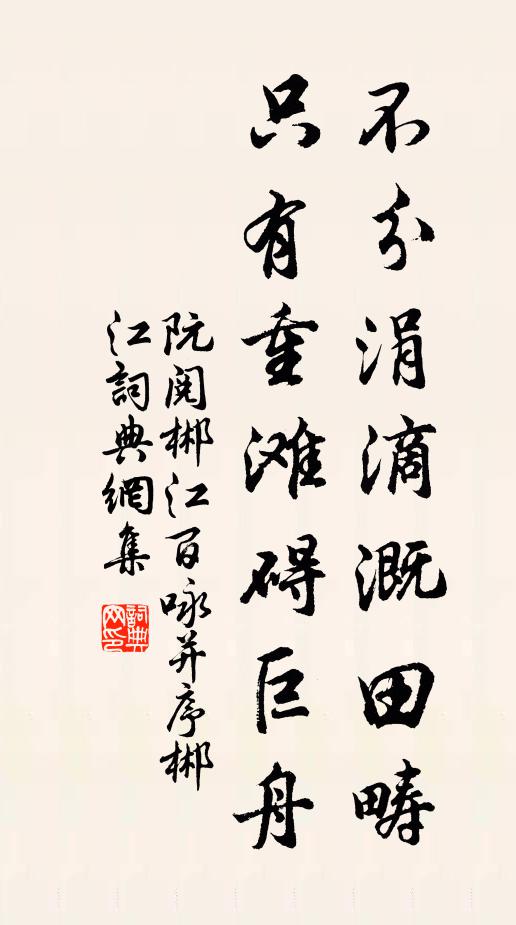 不分涓滴溉田畴
只有重滩碍巨舟
阮阅郴江百咏并序郴
江詞典網集
詞典網印